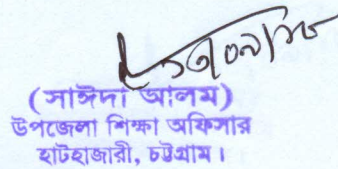 (সাঈদা আলম)
উপজেলা শিক্ষা অফিসার
হাটহাজারী, চট্টগ্রাম।